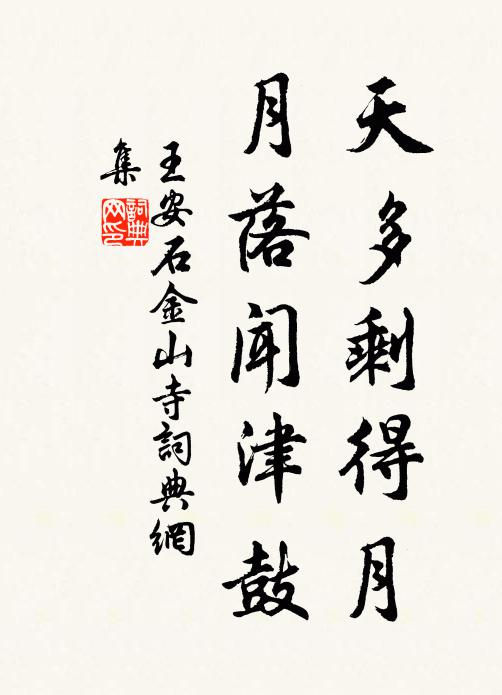 天多剩得月
月落聞津鼓
王安石金山寺詞典網
集
詞典
网印